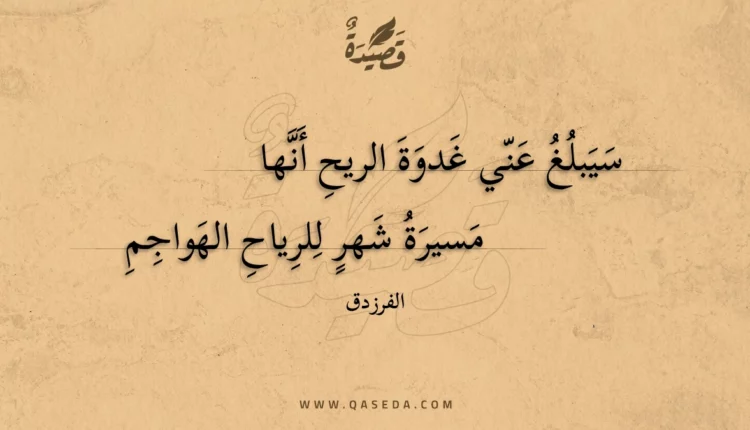 قَصِيْدَةٌ
سَيَبلُغُ عَنّي غَدوَةَ الريحِ أَنَّها
مَسيرَةُ شَهرٍ لِلرِياحِ الهَواجِمِ
الفرزدق
WWW.QASEDA.COM